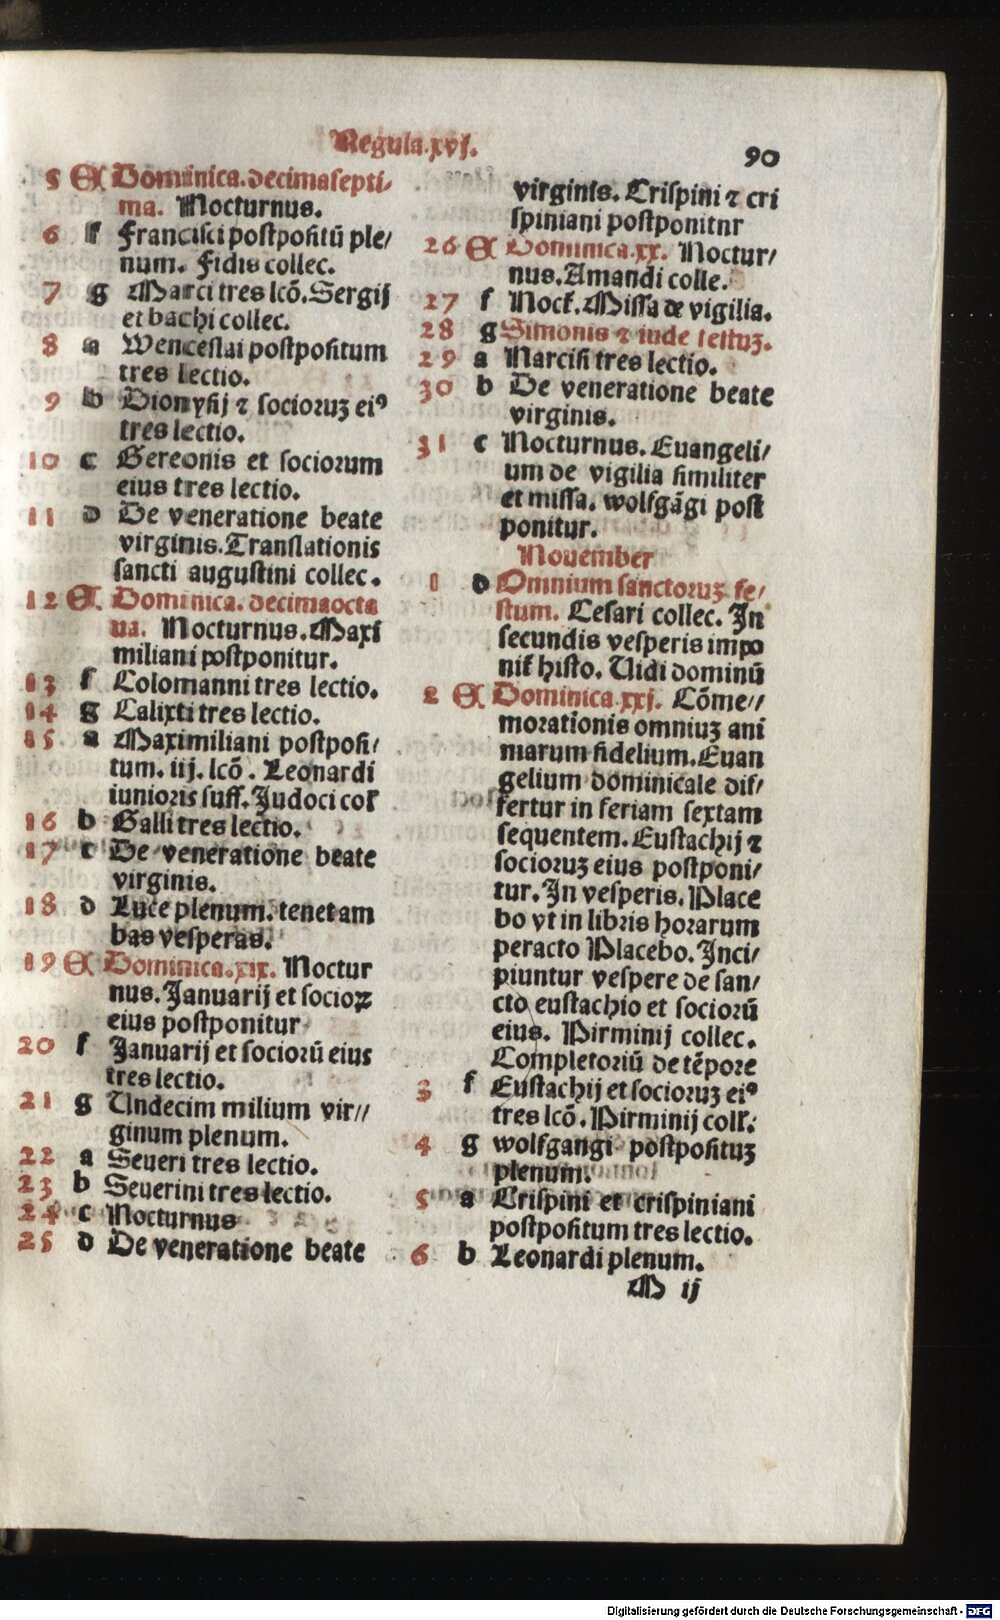 Regula.xvj.
90
5 E Dominica.decimasepti/
ma. Nocturnus.
6 f Francisci postpositū ple/
num. Fidis collec.
7 g Marci tres lcō. Sergij
et bachi collec.
8 a Wenceslai postpositum
tres lectio.
9 b Dionysij ⁊ socioruꝫ eiꝰ
tres lectio.
10 c Gereonis et sociorum
eius tres lectio.
11 d De veneratione beate
virginis. Translationis
sancti augustini collec.
12 E Dominica. decimaocta
ua. Nocturnus. Maxi
miliani postponitur.
13 f Colomanni tres lectio.
14 g Calixti tres lectio.
15 a Maximiliani postposi/
tum. iij. lcō. Leonardi
iunioris suff. Judoci col̄
16 b Galli tres lectio.
17 c De veneratione beate
virginis.
18 d Luce plenum. tenet am
bas vesperas.
19 E Dominica.xix. Noctur
nus. Januarij et socioꝝ
eius postponitur
20 f Januarij et sociorū eius
tres lectio.
21 g Undecim milium vir//
ginum plenum.
22 a Seueri tres lectio.
23 b Seuerini tres lectio.
24 c Nocturnus
25 d De veneratione beate
virginis. Crispini ⁊ cri
spiniani postponitnr
26 E Dominica.xx. Noctur/
nus. Amandi colle.
27 f Noct̄. Missa de vigilia.
28 g Simonis ⁊ iude festuꝫ.
29 a Narcisi tres lectio.
30 b De veneratione beate
virginis.
31 c Nocturnus. Euangeli/
um de vigilia similiter
et missa. wolfgāgi post
ponitur.
Nouember
1 d Omnium sanctoruꝫ fe/
stum. Cesari collec. In
secundis vesperis impo
nit̄ histo. Uidi dominū
2 E Dominica.xxj. Cōme//
morationis omniuꝫ ani
marum fidelium. Euan
gelium dominicale dif/
fertur in feriam sextam
sequentem. Eustachij ⁊
socioruꝫ eius postponi/
tur. In vesperis. Place
bo vt in libris horarum
peracto Placebo. Inci/
piuntur vespere de san/
cto eustachio et sociorū
eius. Pirminij collec.
Completoriū de tēpore
3 f Eustachij et socioruꝫ eiꝰ
tres lcō. Pirminij coll̄.
4 g wolfgangi postposituꝫ
plenum.
5 a Crispini et crispiniani
postpositum tres lectio.
6 b Leonardi plenum.
M ij
Digitalisierung gefördert durch die Deutsche Forschungsgemeinschaft - DFG